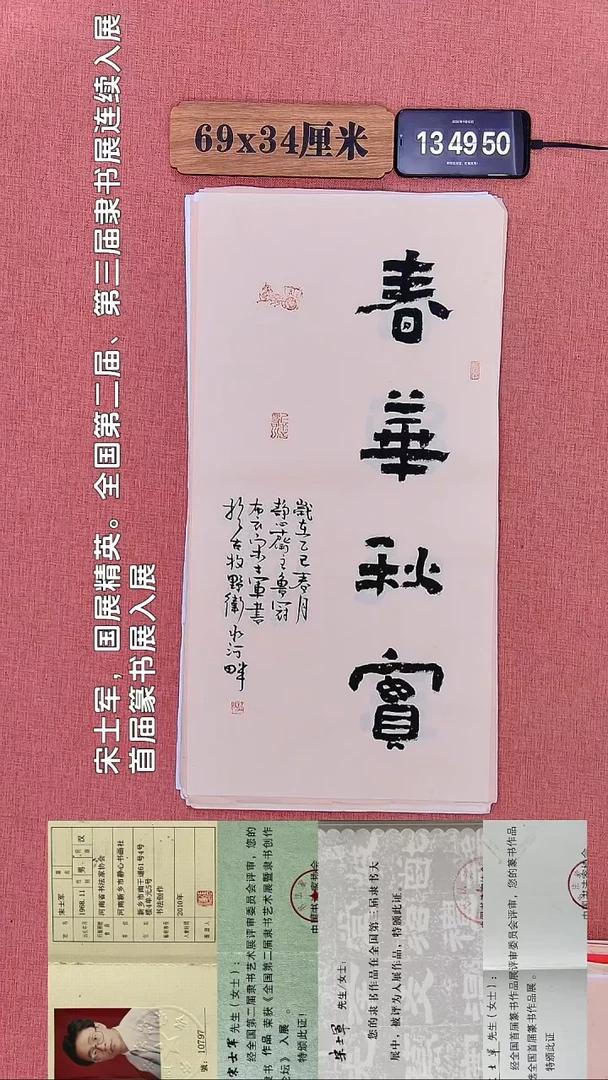 宋士军，国展精英。全国第二届、第三届隶书展连续入展
首届篆书展入展
69x34厘米
13 49 50
春華秋實
歲在乙巳春月
静心齋主魯冠
布衣宋士軍書
於古牧野衛水河畔
宋士军
1968.11
男
汉
河南省书法家协会
河南新乡市静心书画社
新乡市南干道61号4号
楼4单元5号
书法创作
2010年
号：10797
宋士军 先生（女士）：
经全国第二届隶书艺术展评审委员会评审，您的
隶书 作品 荣获《全国第二届隶书艺术展暨隶书创作
论坛》入展。
特颁此证！
宋士军 先生/女士：
您的隶书作品在全国第三届隶书大
展中，被评为入展作品，特颁此证。
士军 先生（女士）：
经全国首届篆书作品展评审委员会评审，您的篆书作品
全国首届篆书作品展。
特颁此证